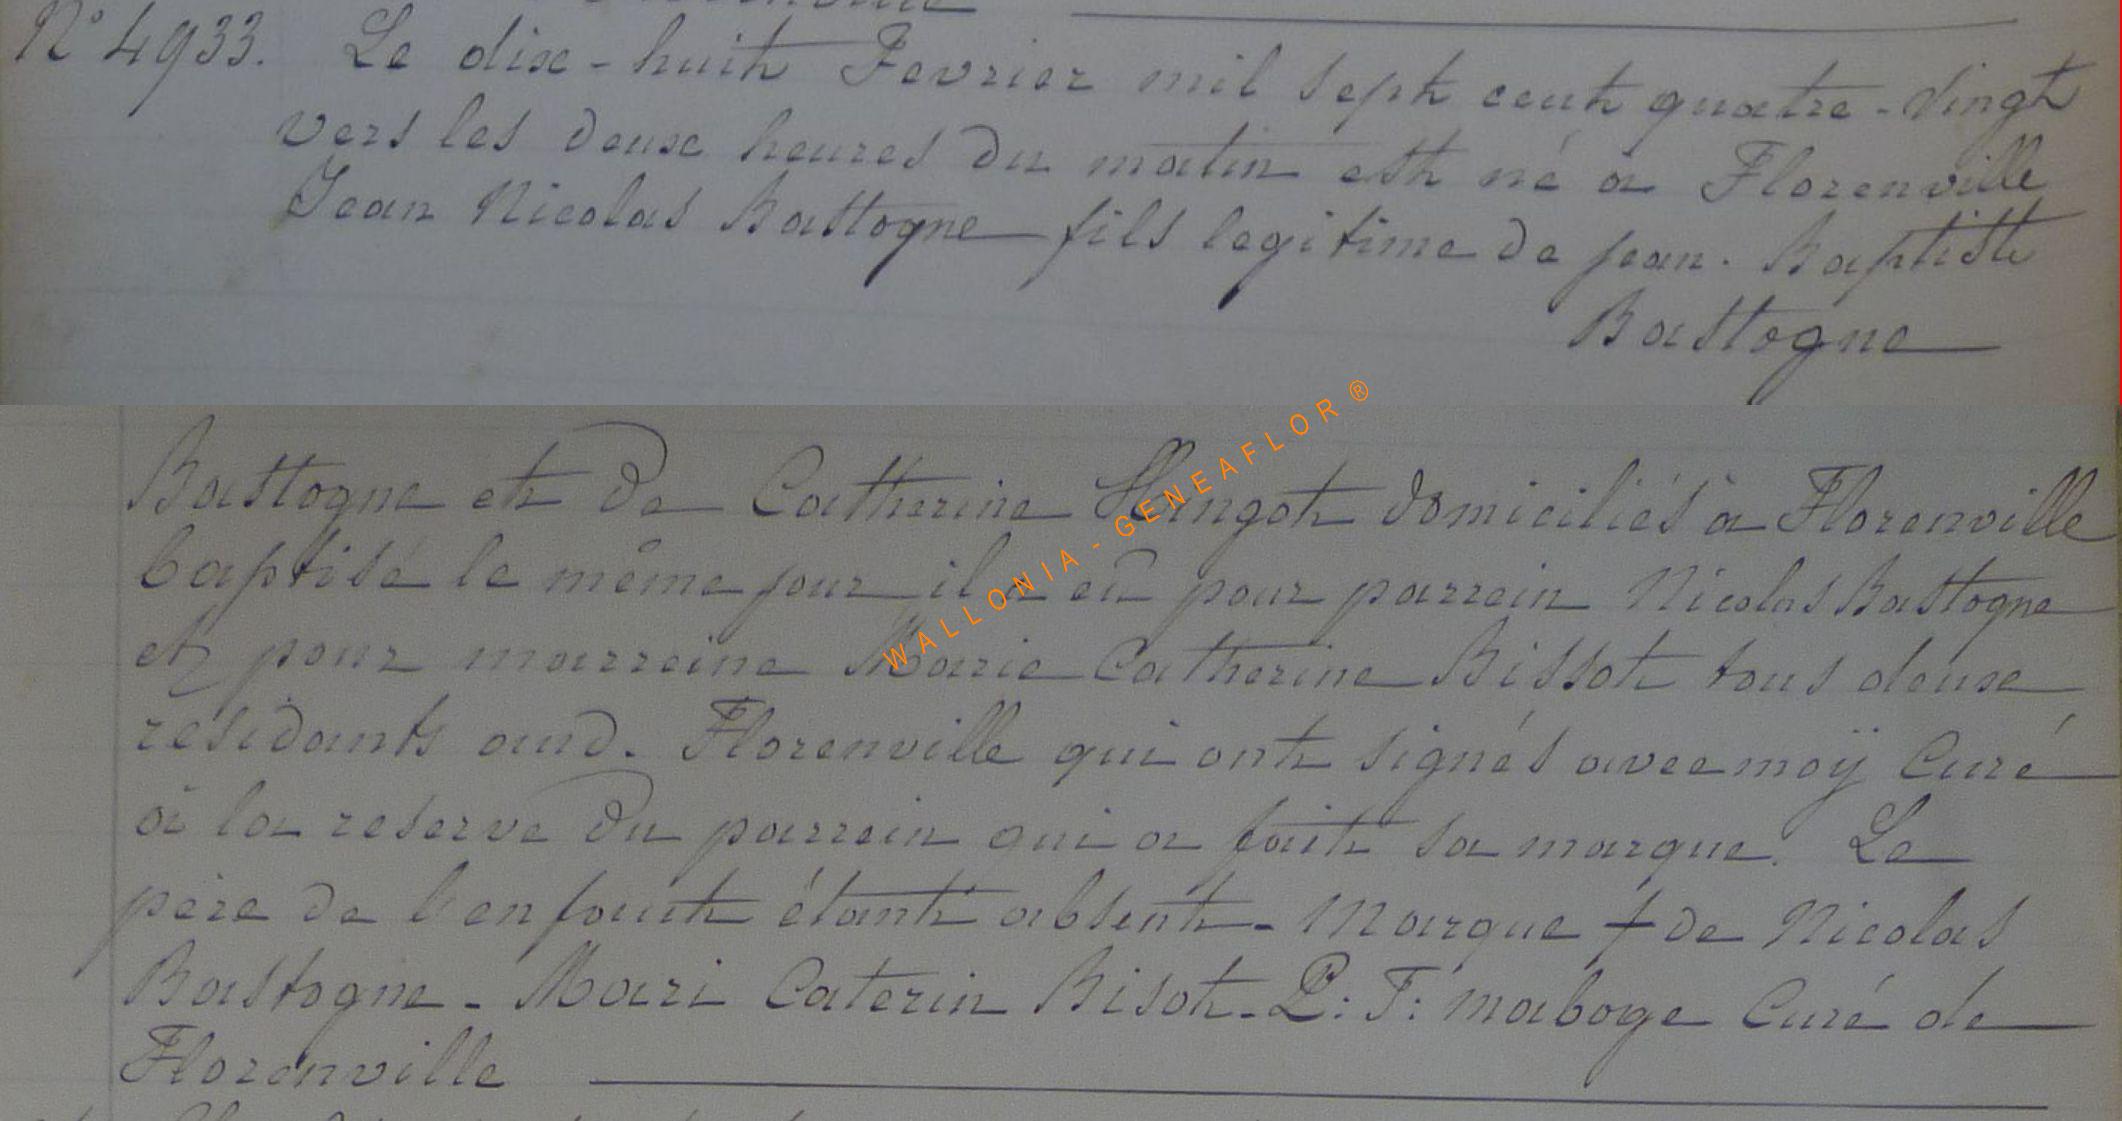 N° 4933. Le dix-huit Fevrier mil sept cent quatre-vingt
vers les deux heures du matin est né à Florenville
Jean Nicolas Bastogne fils legitime de jean. Baptiste
Bastogne
Bastogne et de Catherine Hangot domiciliés à Florenville
baptisé le même jour il a eû pour parrein Nicolas Bastogne
et pour marreine Marie Catherine Bissot tous deux
residants aud. Florenville qui ont signés avec moÿ Curé
à la reserve du parrein qui a fait sa marque. Le
père de l'enfant étant absent - Marque + de Nicolas
Bastogne - Mari Caterin Bisot - P: F: maboge Curé de
Florenville
WALLONIA - GENEAFLOR ®